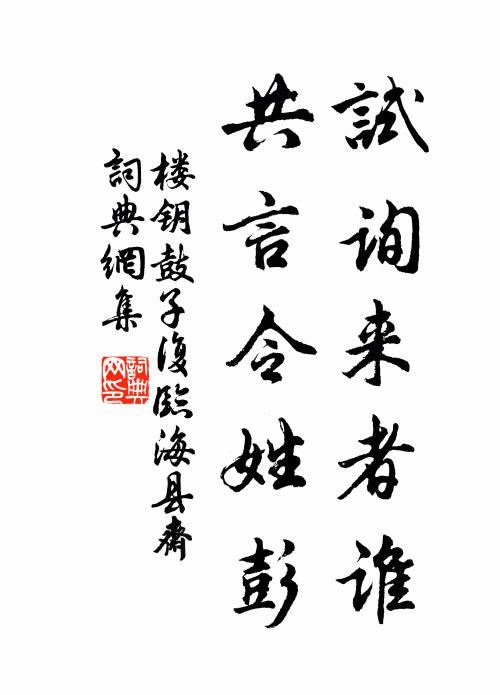 試询来者谁
共言令姓彭
楼钥鼓子復臨海县齋
詞典網集
詞典网印